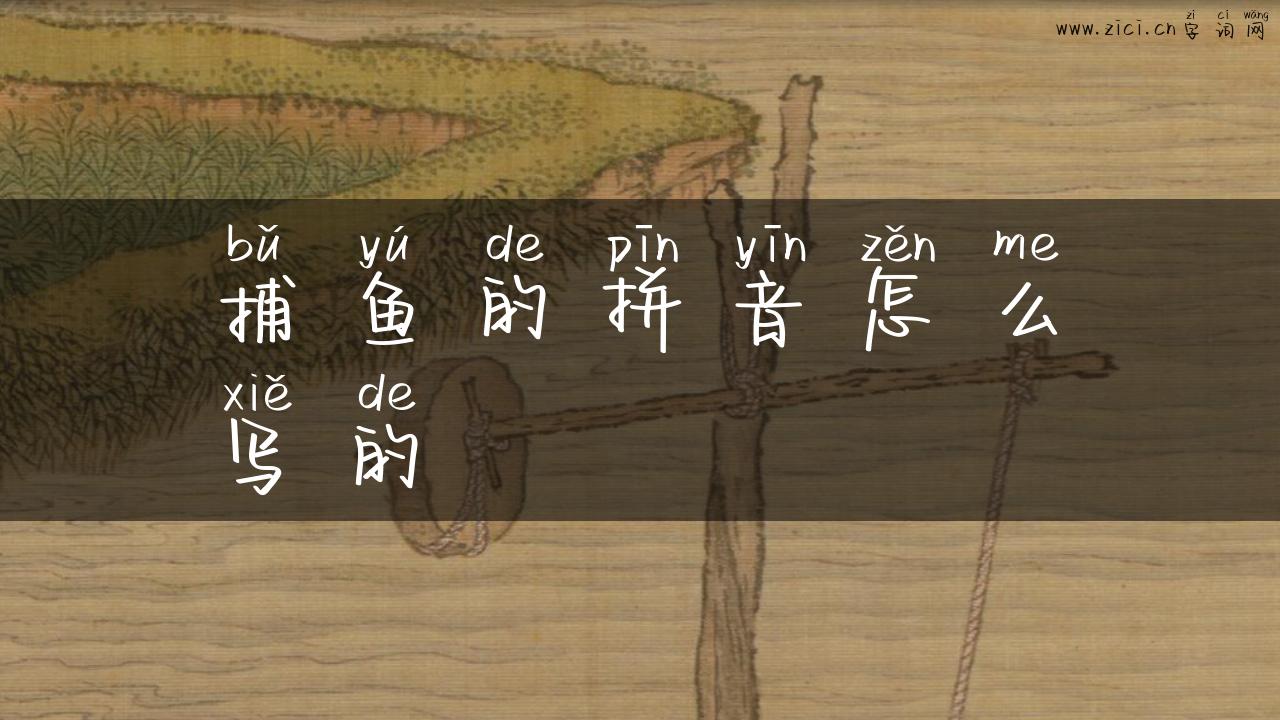 zì cí wǎng
www.zici.cn 字词网
bǔ yú de pīn yīn zěn me
捕鱼的拼音怎么
xiě de
写的